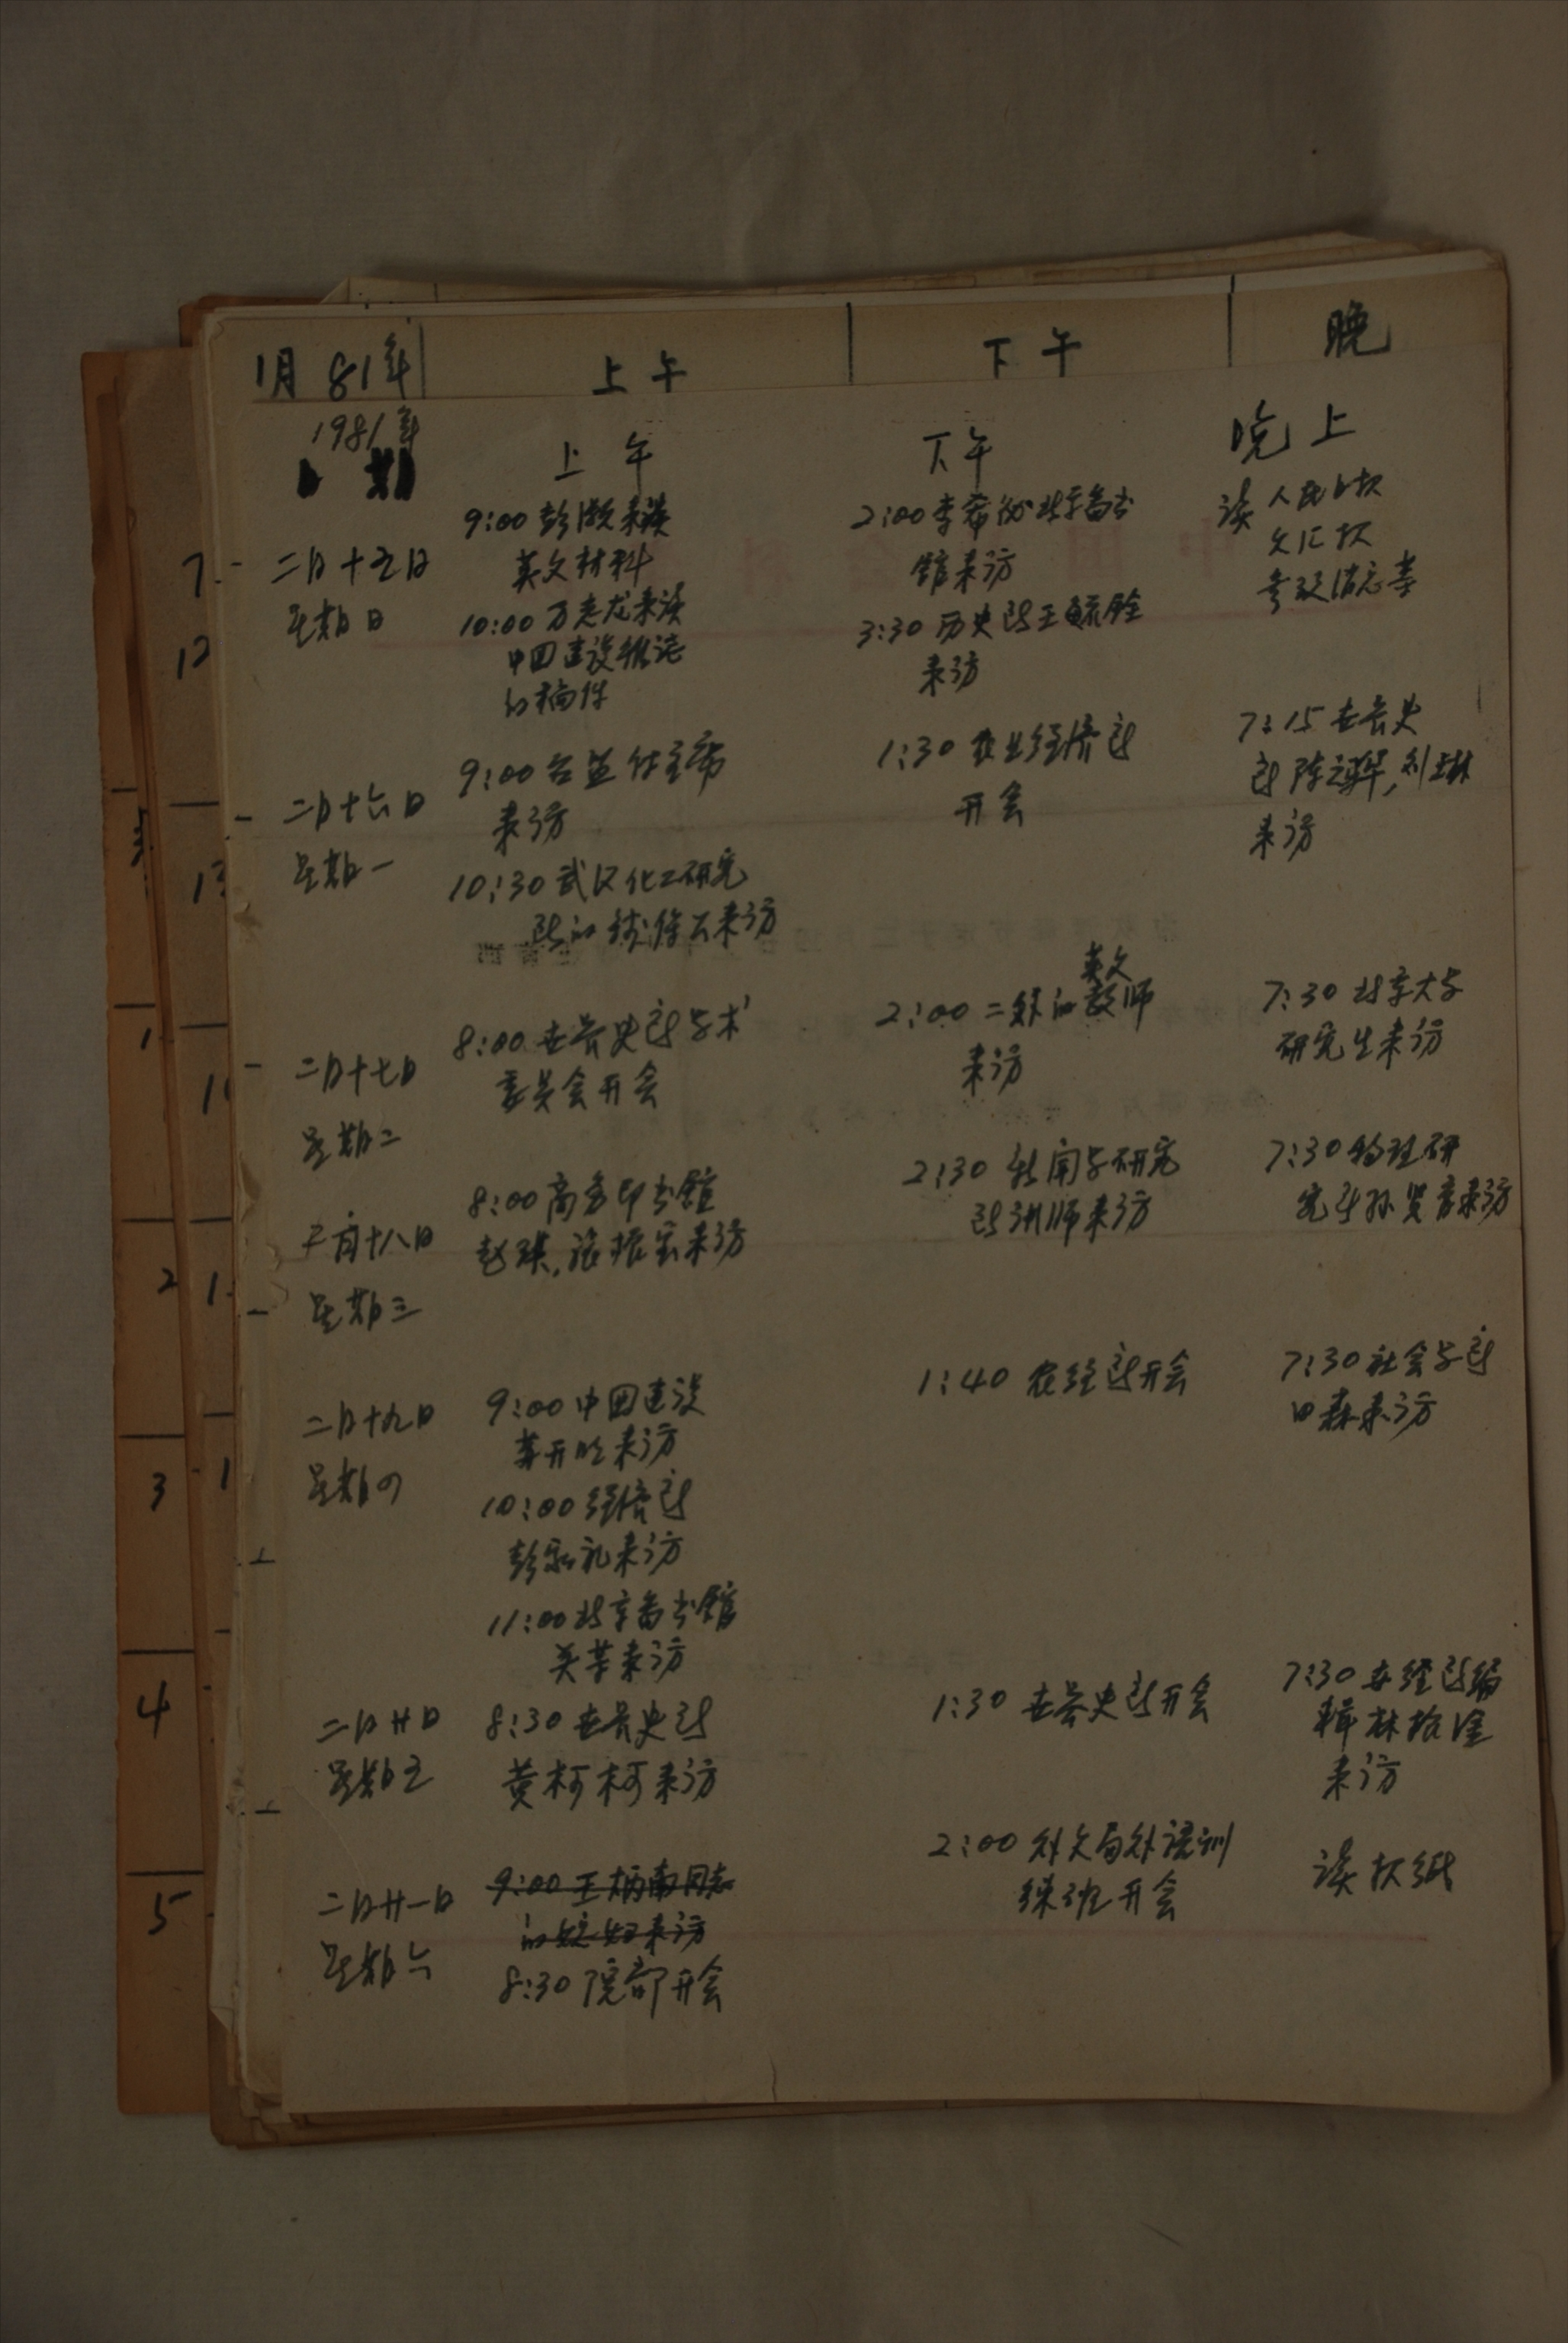 1月 81年 上午 下午 晚
1981年
上午 下午 晚上
二月十五日
星期日
9:00 彭灏来谈
英文材料
10:00 万志龙来谈
中国建设杂志
的稿件
2:00 李希泌北京图书
馆来访
3:30 历史所王毓铨
来访
读 人民日报
文汇报
参考消息等
二月十六日
星期一
9:00 合益付主席
来访
10:30 武汉化工研究
所的 来访
1:30 农业经济所
开会
7:15 世界史
所陈 华,刘
来访
二月十七日
星期二
8:00 世界史所学术
委员会开会
2:00 二外的英文教师
来访
7:30 北京大学
研究生来访
二月十八日
星期三
8:00 商务印书馆
赵琪,张振宏来访
2:30 新闻学研究
所讲师来访
7:30 物理研
究所孙贤 来访
二月十九日
星期四
9:00 中国建设
苏开 来访
10:00 经济所
彭 礼来访
11:00 北京图书馆
英芳来访
1:40 农经所开会
7:30 社会学所
田森来访
二月廿日
星期五
8:30 世界史所
黄柯柯来访
1:30 世界史所开会
7:30 农经所编
辑林 
来访
二月廿一日
星期六
9:00 王炳南同志
的 来访
8:30 院部开会
2:00 外文局外语训
练班开会
读报纸
7
12
1
2
3
4
5